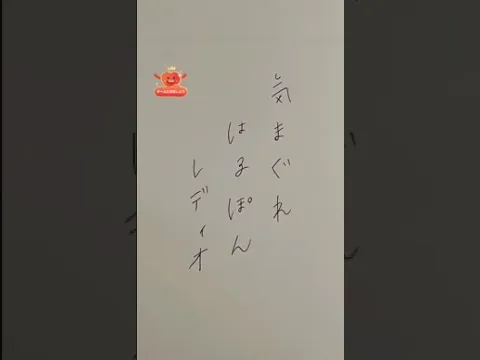 気まぐれ
はるぽん
レディオ